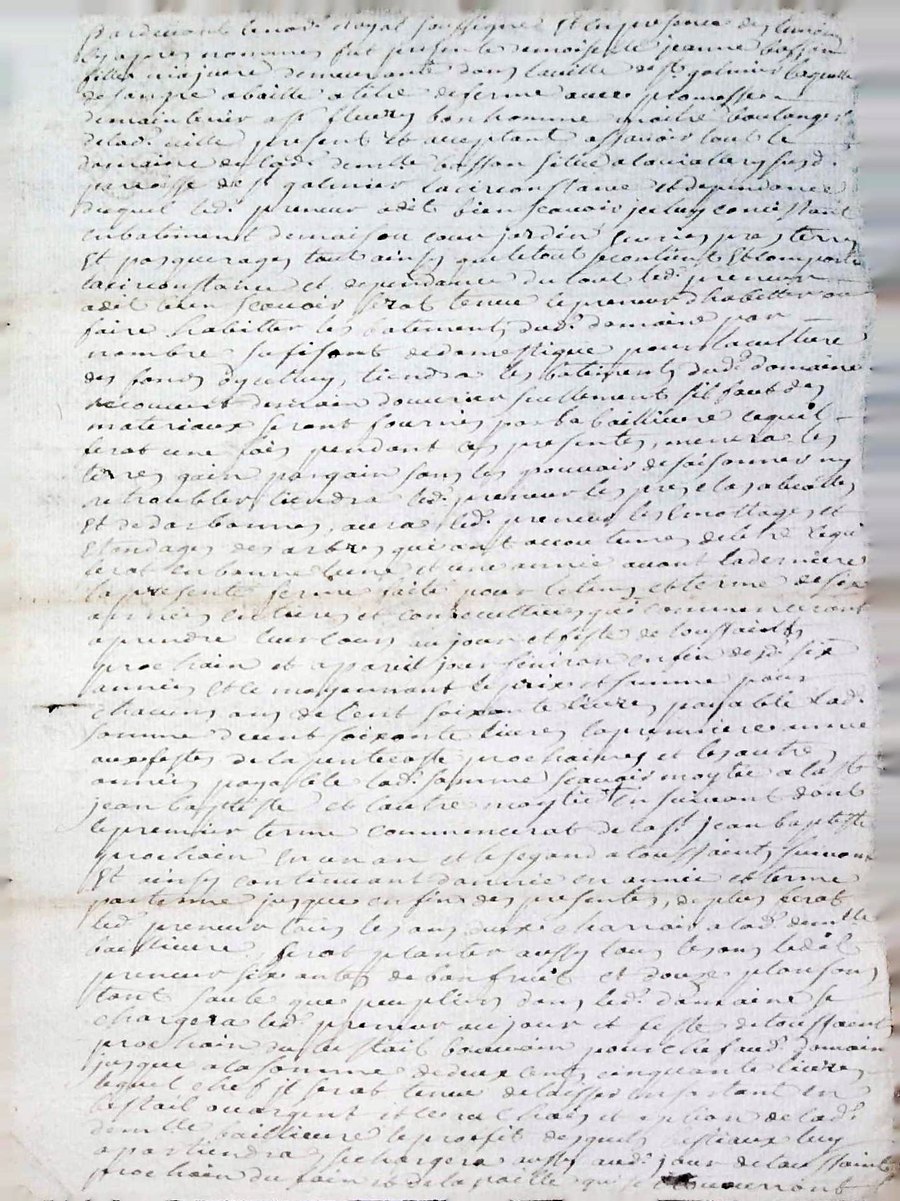 pardevant le no.re royal soussigné et en presence des temoins
cy apres nommes fut presente demoiselle jeanne basson
fille majeure demeurante dans la ville de s.t galmier laquelle
de son gre a baillé a titre de ferme avec promesse
de maintenir a s.r fleury bonhomme maitre boulanger
de lad. ville present et acceptant assavoir tout le
domaine de lad. demlle basson situé a
paroisse de s.t galmier la circonstance et dependance
duquel led. preneur a dit bien scavoir jceluy consistant
en batiment de maison cour jardin ecuries pres terres
et pasquerages tout ainsy que le tout se contient et comporte
la circonstance et dependance du tout led. preneur
a dit bien scavoir serat tenue le preneur d'habitter ou
faire habitter les batiments dud. domaine par
nombre sufisant de domestique pour la culture
des fonds d'yceluy, tiendra les batiments dud. domaine
recouvert de main d'ouvrier seullement s'il faut des
materiaux seront fournis par la bailleure lequel
serat une fois pendant ces presentes, menera les
terres gain par gain sans les pouvoir desaisonner ny
retroubler tiendra led. preneur les pres
et aura led. preneur les emottages et
etondages des arbres qui ont accoutumes de letre lequel
serat en bonne lune et une année avant la derniere
la presente ferme faite pour le tems et terme de six
années entieres et consecutives qui commenceront
a prendre leur cours au jour et feste de toussaints
prochain et a pareil jour finiron en fin desd. six
années et le moyennant le prix et somme pour
chacuns ans de cent soixante livres payable lad.
somme de cent soixante livres la premiere année
aux festes de la pentecoste prochaines et les autres
années payable lad. somme scavoir moytié a la st
jean baptiste et l'autre moytié en suivant dont
le premier terme commencerat de la s.t jean baptiste
prochain en un an et le segond a toussaints suivant
et ainsy continuant d'année en année et terme
par terme jusque en fin des presentes, de plus serat
led. preneur tous les ans deux charrois a lad. demlle
bailleure serat planter aussy tous les ans led.
preneur six antes de bon fruit et douze plansons
tant saule que peupliers dans led. domaine se
chargera led. preneur au jour et feste de toussaint
prochain du bestail pour chef aud. domaine
jusque a la somme de deux cents cinquante livres
lequel chef il serat tenue de laisser en sortant en
bestail ou argent et option de lad.
demlle bailleure le proffit desquels bestiaux luy
apartiendra se chargera aussy aud. jour de toussaints
prochain du foin et de la paille qui se trouveront